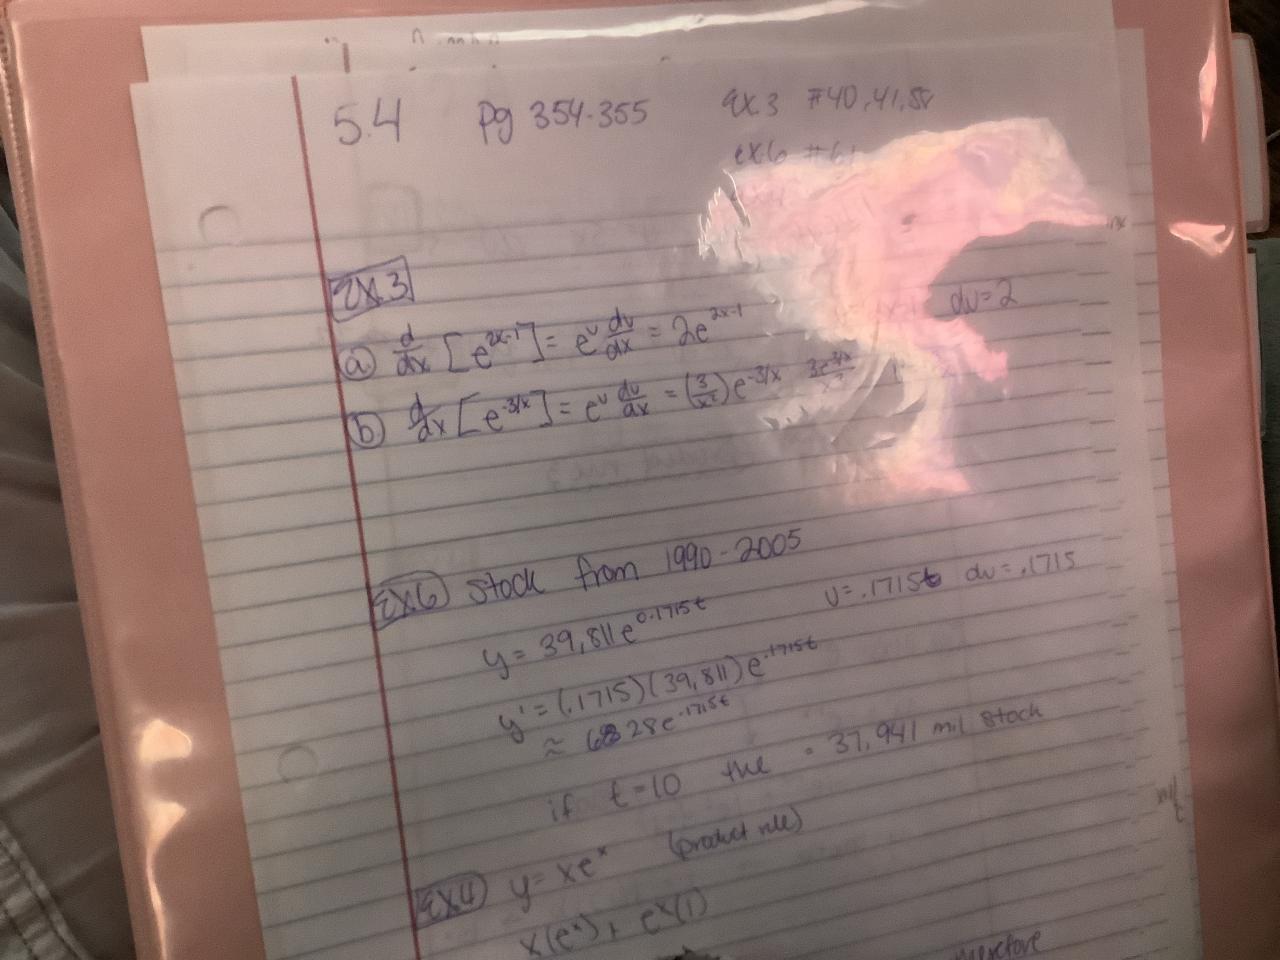 5.4 pg 354-355 ex.3 #40,41,
ex.6 #61
Ex.3
a) d/dx [e^(2x-1)] = e^u du/dx = 2e^(2x-1) du=2
b) d/dx [e^(-3/x)] = e^u du/dx = (3/x²)e^(-3/x)
Ex6 Stock from 1990-2005
y = 39,811e^(0.1715t) u=.1715t du=.1715
y' = (.1715)(39,811)e^(.1715t)
≈ 6828e^(.1715t)
if t=10 the 37,941 mil stock
Ex4 y= xe^x (product rule)
x(e^x) + e^x(1)
therefore